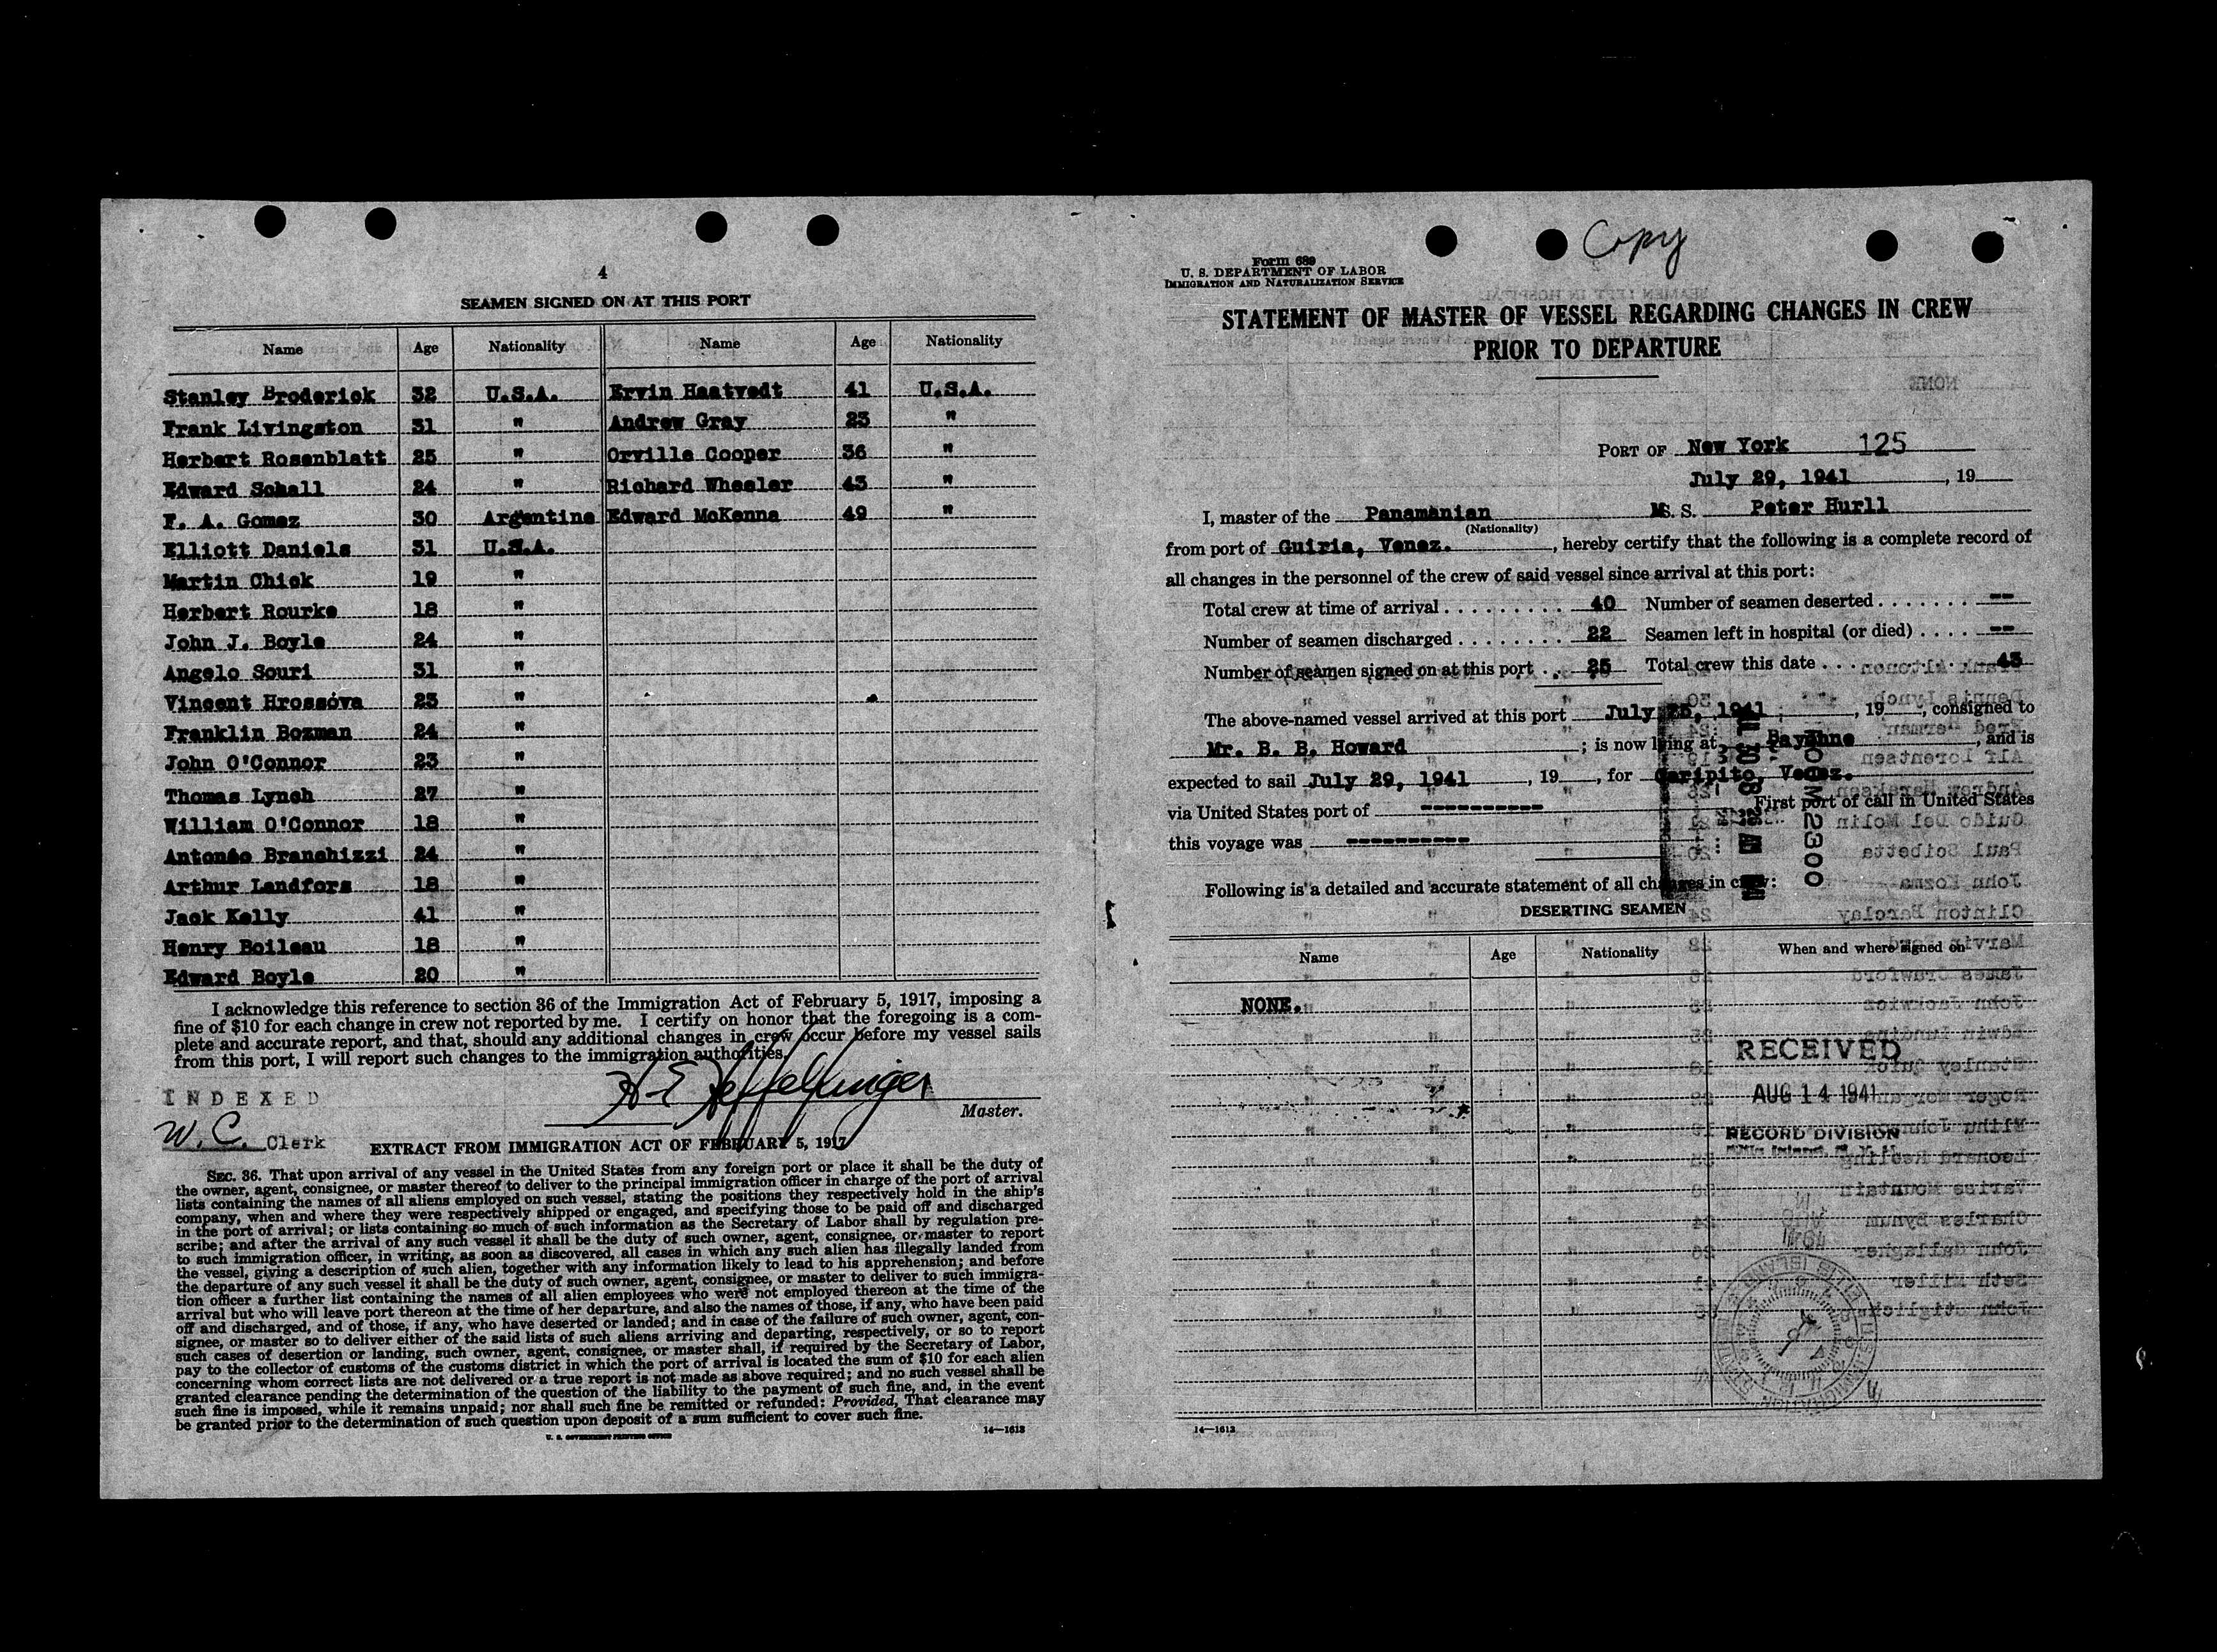 4
SEAMEN SIGNED ON AT THIS PORT
Name Age Nationality Name Age Nationality
Stanley Broderick 32 U.S.A. Ervin Haatvedt 41 U.S.A.
Frank Livingston 31 " Andrew Gray 23 "
Herbert Rosenblatt 25 " Orville Cooper 36 "
Edward Schall 24 " Richard Wheeler 43 "
F. A. Gomez 30 Argentine Edward McKenna 49 "
Elliott Daniels 31 U.S.A.
Martin Chick 19 "
Herbert Rourke 18 "
John J. Boyle 24 "
Angelo Souri 31 "
Vincent Hrossova 23 "
Franklin Bozman 24 "
John O'Connor 23 "
Thomas Lynch 27 "
William O'Connor 18 "
Antonio Branchizzi 24 "
Arthur Landfors 18 "
Jack Kelly 41 "
Henry Boileau 18 "
Edward Boyle 20 "
I acknowledge this reference to section 36 of the Immigration Act of February 5, 1917, imposing a
fine of $10 for each change in crew not reported by me. I certify on honor that the foregoing is a com-
plete and accurate report, and that, should any additional changes in crew occur before my vessel sails
from this port, I will report such changes to the immigration authorities.
INDEXED
H E Heffelfinger
Master.
W. C. Clerk
EXTRACT FROM IMMIGRATION ACT OF FEBRUARY 5, 1917
SEC. 36. That upon arrival of any vessel in the United States from any foreign port or place it shall be the duty of
the owner, agent, consignee, or master thereof to deliver to the principal immigration officer in charge of the port of arrival
lists containing the names of all aliens employed on such vessel, stating the positions they respectively hold in the ship's
company, when and where they were respectively shipped or engaged, and specifying those to be paid off and discharged
in the port of arrival; or lists containing so much of such information as the Secretary of Labor shall by regulation pre-
scribe; and after the arrival of any such vessel it shall be the duty of such owner, agent, consignee, or master to report
to such immigration officer, in writing, as soon as discovered, all cases in which any such alien has illegally landed from
the vessel, giving a description of such alien, together with any information likely to lead to his apprehension; and before
the departure of any such vessel it shall be the duty of such owner, agent, consignee, or master to deliver to such immigra-
tion officer a further list containing the names of all alien employees who were not employed thereon at the time of the
arrival but who will leave port thereon at the time of her departure, and also the names of those, if any, who have been paid
off and discharged, and of those, if any, who have deserted or landed; and in case of the failure of such owner, agent, con-
signee, or master so to deliver either of the said lists of such aliens arriving and departing, respectively, or so to report
such cases of desertion or landing, such owner, agent, consignee, or master shall, if required by the Secretary of Labor,
pay to the collector of customs of the customs district in which the port of arrival is located the sum of $10 for each alien
concerning whom correct lists are not delivered or a true report is not made as above required; and no such vessel shall be
granted clearance pending the determination of the question of the liability to the payment of such fine, and, in the event
such fine is imposed, while it remains unpaid; nor shall such fine be remitted or refunded: Provided, That clearance may
be granted prior to the determination of such question upon deposit of a sum sufficient to cover such fine.
U. S. GOVERNMENT PRINTING OFFICE 14—1613
Copy
Form 689
U. S. DEPARTMENT OF LABOR
IMMIGRATION AND NATURALIZATION SERVICE
STATEMENT OF MASTER OF VESSEL REGARDING CHANGES IN CREW
PRIOR TO DEPARTURE
PORT OF New York 125
July 29, 1941, 19
I, master of the Panamanian M S. S. Peter Hurll
(Nationality)
from port of Guiria, Venez., hereby certify that the following is a complete record of
all changes in the personnel of the crew of said vessel since arrival at this port:
Total crew at time of arrival 40 Number of seamen deserted --
Number of seamen discharged 22 Seamen left in hospital (or died) --
Number of seamen signed on at this port 25 Total crew this date 43
The above-named vessel arrived at this port July 25, 1941, 19, consigned to
Mr. B. B. Howard; is now lying at Bayonne, and is
expected to sail July 29, 1941, 19, for Caripito, Venez.
via United States port of ---------- First port of call in United States
this voyage was ----------
ROOM 2300
Following is a detailed and accurate statement of all changes in crew:
DESERTING SEAMEN
Name Age Nationality When and where signed on
NONE.
RECEIVED
AUG 14 1941
RECORD DIVISION
Ellis Island, N. Y.
14—1613